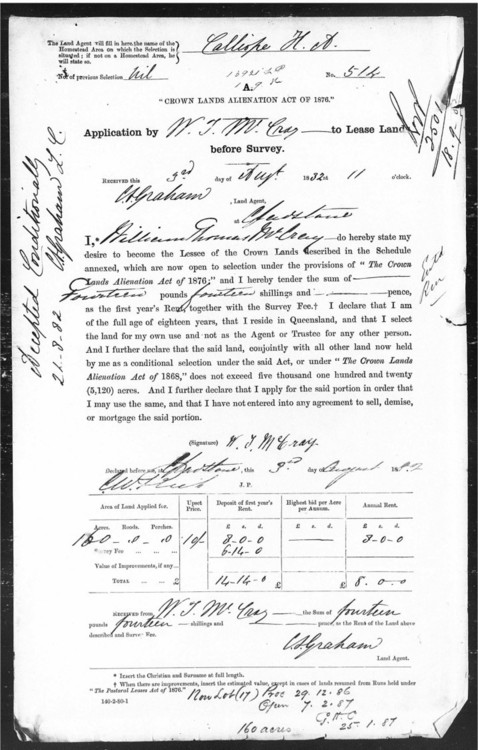 The Land Agent will fill in here the name of the
Homestead Area on which the Selection is
situated; if not on a Homestead Area, he
will state so.
Calliope H. A.
No. of previous Selection Nil
No. 514
A.
"CROWN LANDS ALIENATION ACT OF 1876."
Application by W. T. McCray to Lease Land
before Survey.
RECEIVED this 3rd day of Augt. 1882 at 11 o'clock.
CHGraham, Land Agent,
at Gladstone
I, William Thomas McCray do hereby state my
desire to become the Lessee of the Crown Lands described in the Schedule
annexed, which are now open to selection under the provisions of "The Crown
Lands Alienation Act of 1876;" and I hereby tender the sum of
Fourteen pounds fourteen shillings and pence,
as the first year's Rent, together with the Survey Fee.† I declare that I am
of the full age of eighteen years, that I reside in Queensland, and that I select
the land for my own use and not as the Agent or Trustee for any other person.
And I further declare that the said land, conjointly with all other land now held
by me as a conditional selection under the said Act, or under "The Crown Lands
Alienation Act of 1868," does not exceed five thousand one hundred and twenty
(5,120) acres. And I further declare that I apply for the said portion in order that
I may use the same, and that I have not entered into any agreement to sell, demise,
or mortgage the said portion.
Accepted Conditionally
CHGraham L. C.
21-8-82
(Signature) W. T. McCray
Declared before me, at Gladstone, this 3rd day of August 1882
J. P.
Area of Land Applied for.
Upset Price.
Deposit of first year's Rent.
Highest bid per Acre per Annum.
Annual Rent.
Acres. Roods. Perches.
£ s. d.
£ s. d.
£ s. d.
160 - .0 .0
10/-
8-0-0
8-0-0
Survey Fee
6-14-0
Value of Improvements, if any
TOTAL £
14-14-0
£
£
8.0.0
RECEIVED from W. T. McCray the Sum of fourteen
pounds fourteen shillings and pence, as the Rent of the Land above
described and Survey Fee.
CHGraham
Land Agent.
* Insert the Christian and Surname at full length.
† When there are improvements, insert the estimated value, except in cases of lands resumed from Runs held under
"The Pastoral Leases Act of 1876."
Now Lot (17) Proc 29.12.86
Open 7.2.87
25.1.87
160 acres